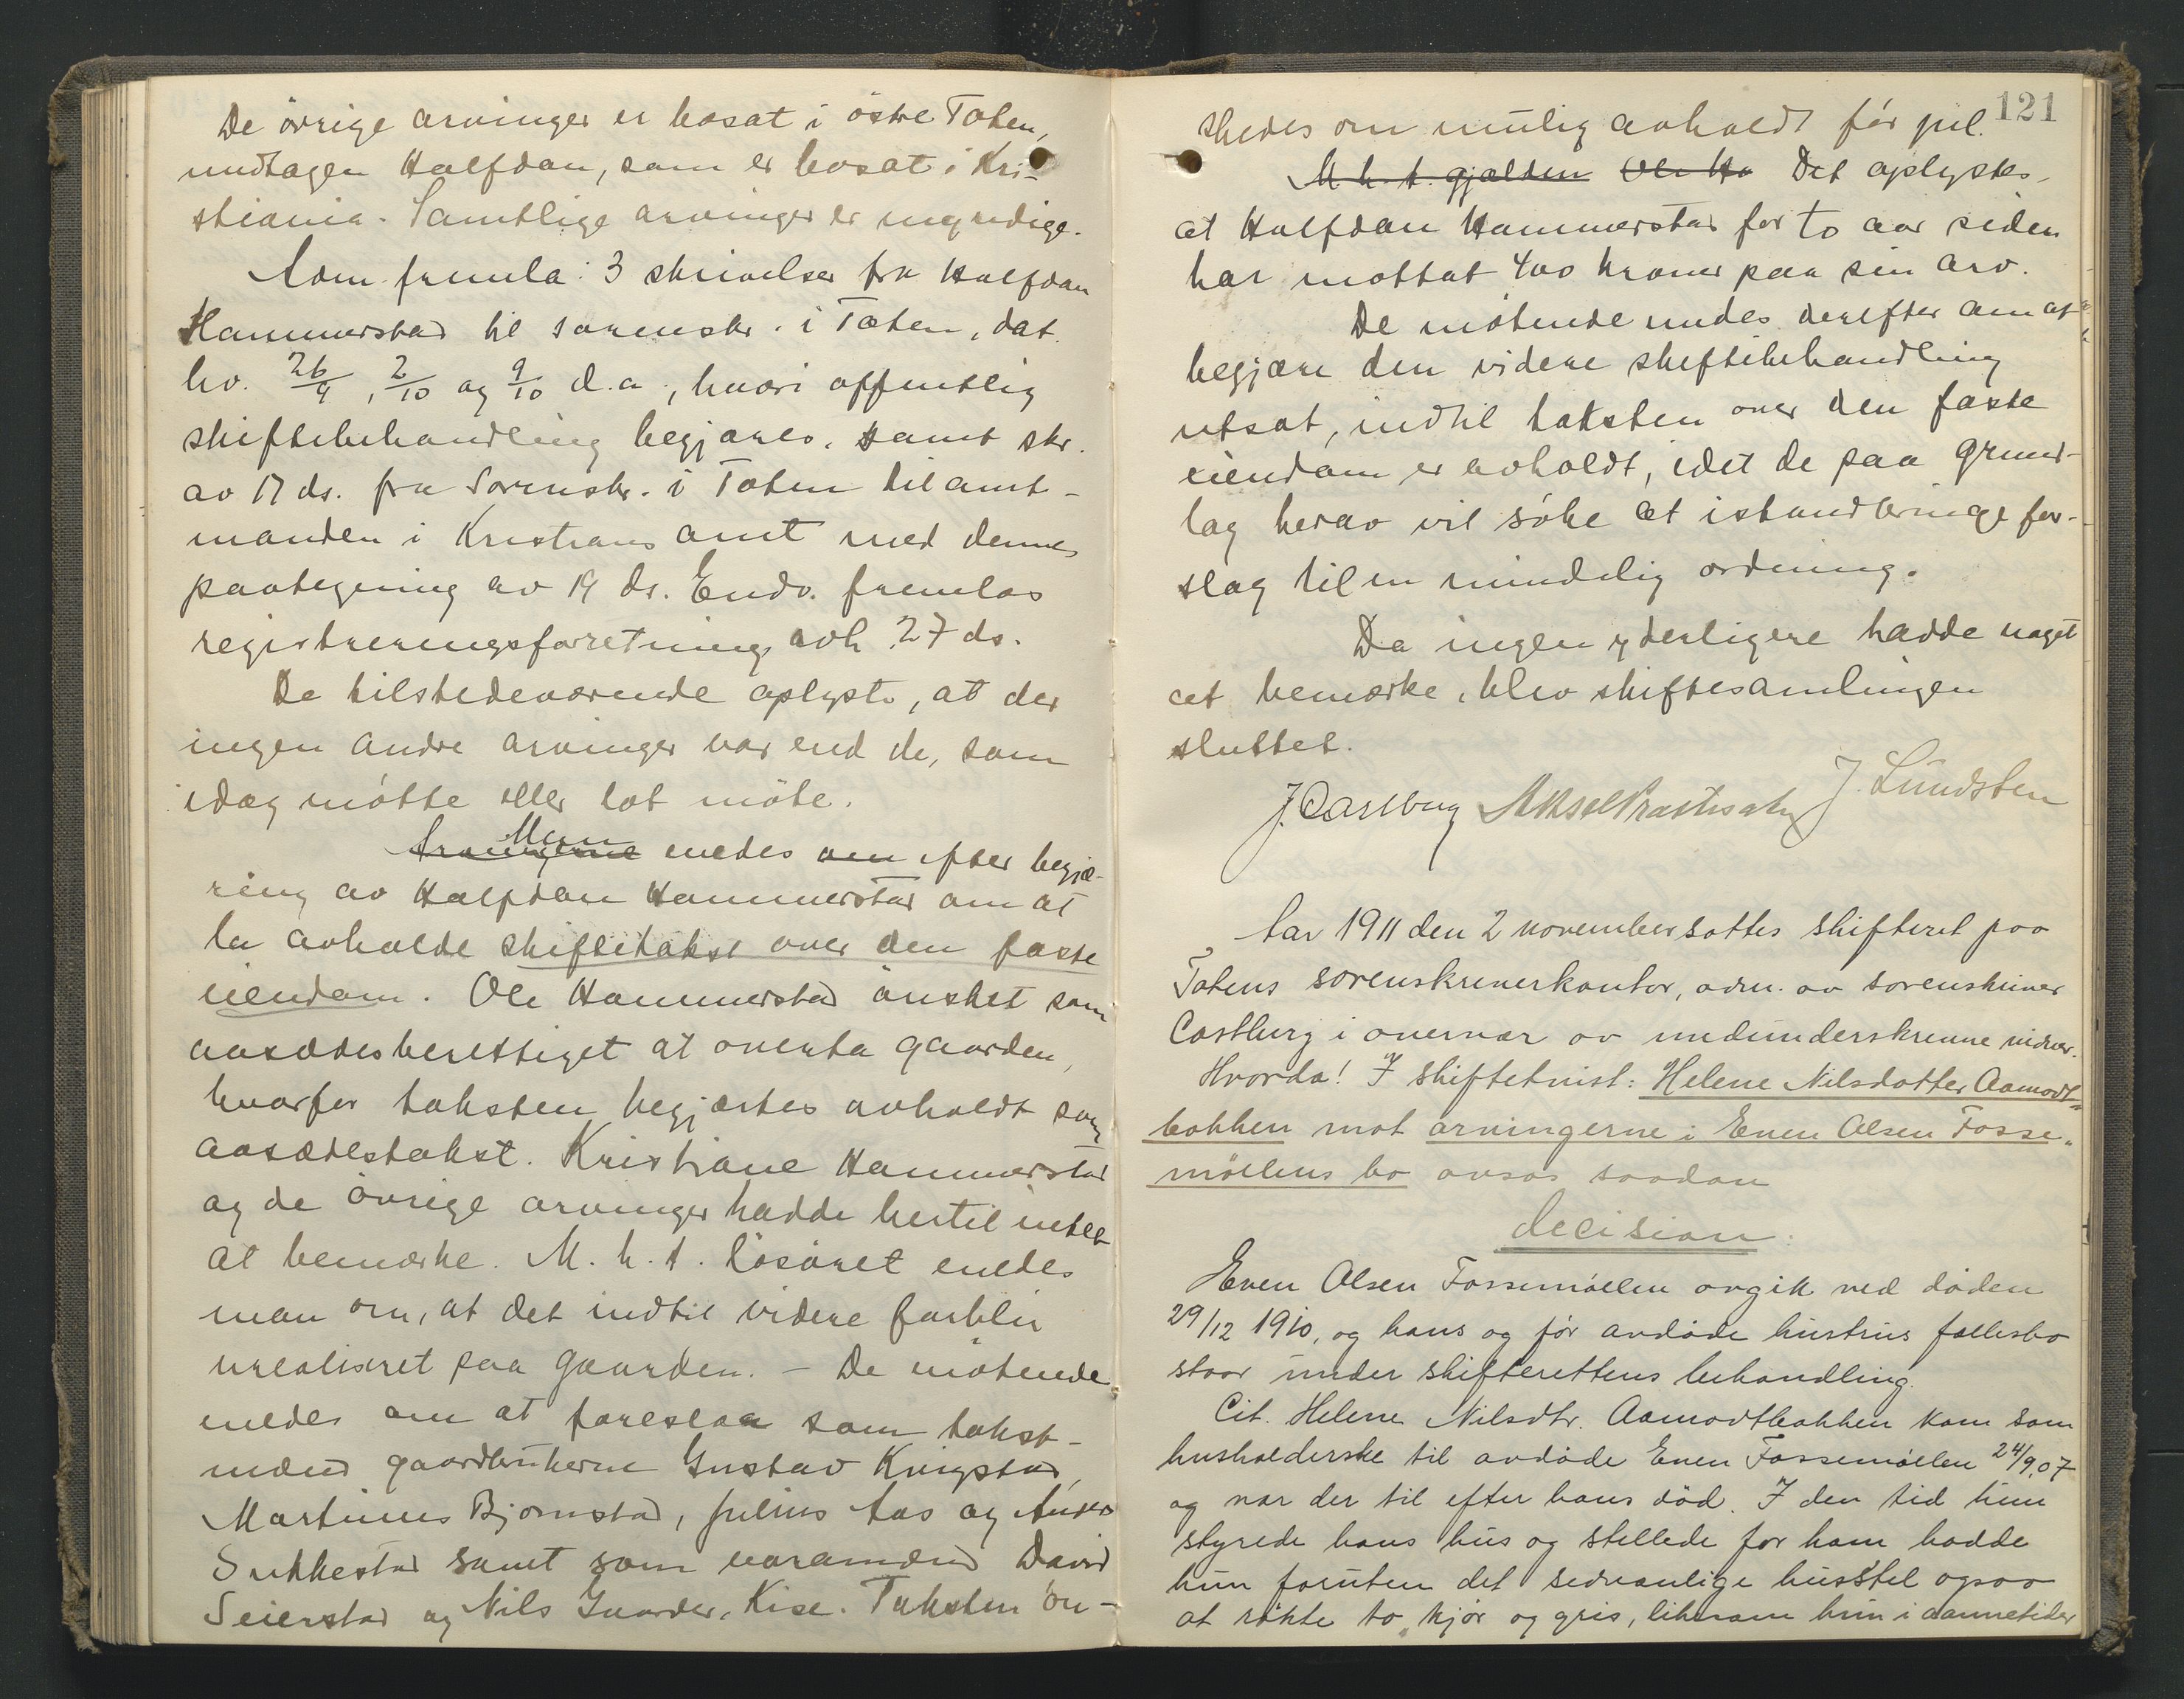 De övrige arvinger er bosat i östre Toten,
undtagen Halfdan, som er bosat i Kri-
stiania. Samtlige arvinger er myndige.
Dom. fremla: 3 skrivelser fra Halfdan
Hammerstad til sorenskr. i Toten, dat.
hv. 26/9, 2/10 og 9/10 d.a., hvori offentlig
skiftebehandling begjæres, samt skr.
av 17 ds. fra Sorenskr. i Toten til amt-
manden i Kristians amt med dennes
paategning av 19 ds. Endv. fremlas
registreringsforretning avh. 27 ds.
De tilstedeværende oplyste, at der
ingen andre arvinger var end de, som
idag mötte eller lot möte.
Arvingerne Man enedes om efter begjæ-
ring av Halfdan Hammerstad om at
la avholde skiftetakst over den faste
eiendom. Ole Hammerstad önsket som
aasædesberettiget at overta gaarden,
hvorfor taksten begjærtes avholdt som
aasædestakst. Kristiane Hammerstad
og de övrige arvinger hadde hertil intet
at bemerke. M. h. t. lösöret enedes
man om, at det indtil videre forblir
urealisert paa gaarden. – De mötende
enedes om at foreslaa som takst-
mænd gaardbrukerne Gustav Kvigstad,
Martinus Bjørnstad, Julius Aas og Anders
Sukkestad samt som varamænd David
Seierstad og Nils Gaarder, Kise. Taksten ön-
121
skedes om mulig avholdt för jul.
M. h. t. gjælden Ole Ha Det oplystes,
at Halfdan Hammerstad for to aar siden
har mottat 400 kroner paa sin arv.
De mötende enedes derefter om at
begjære den videre skiftebehandling
utsat, indtil taksten over den faste
eiendom er avholdt, idet de paa grund-
lag herav vil söke at istandbringe for-
slag til en mindelig ordning.
Da ingen yderligere hadde noget
at bemerke, blev skiftesamlingen
sluttet.
J. Castberg Aksel J. Lundsten
Aar 1911 den 2 november sattes skifteret paa
Totens sorenskriverkontor, adm. av sorenskriver
Castberg i overvær av undunderskrevne vidner.
Hvorda! I skiftetvist: Helene Nilsdatter Aamodt=
bakken mot arvingerne i Even Olsen Fosse-
möllens bo avsas saadan
decision:
Even Olsen Fossemöllen avgik ved döden
29/12 1910, og hans og för avdöde hustrus fællesbo
staar under skifterettens behandling.
Cit. Helene Nilsdtr. Aamodtbakken kom som
husholderske til avdöde Even Fossemöllen 24/9 07
og var der til efter hans död. I den tid hun
styrede hans hus og stellede for ham hadde
hun foruten det sedvanlige husstel ogsaa
at rökte to kjör og gris, likesom hun i aannetider